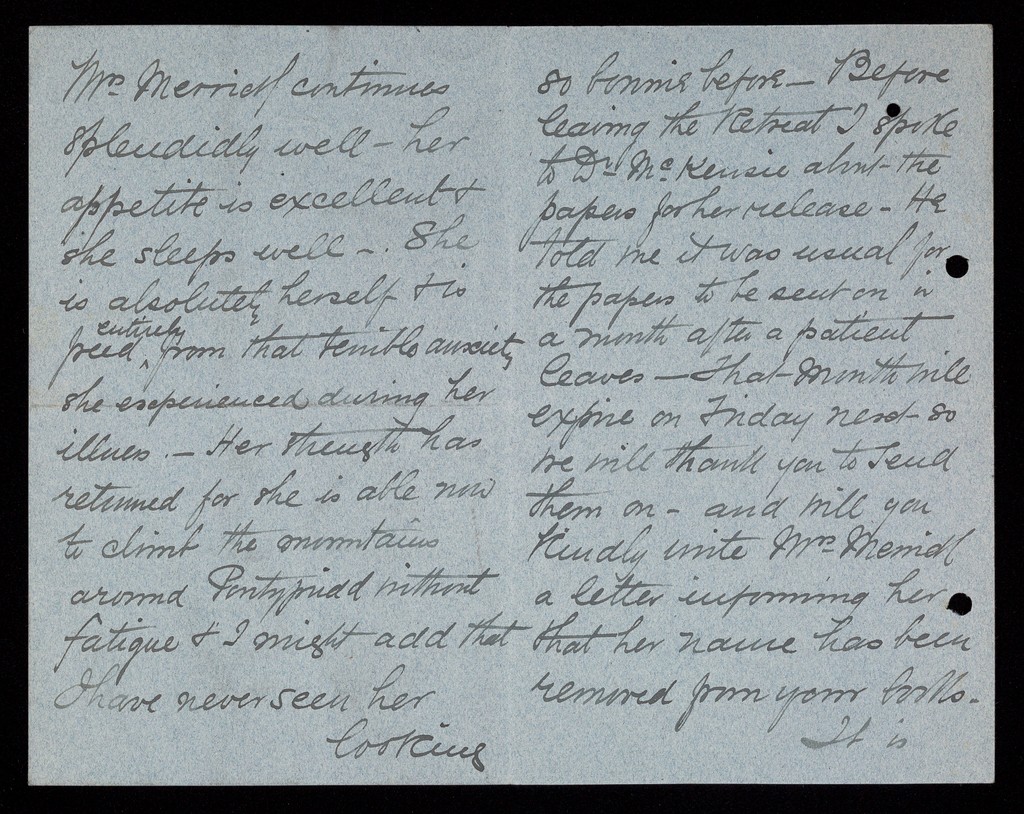 Mrs. Merrick continues
splendidly well - her
appetite is excellent &
she sleeps well -. She
is absolutely herself & is
entirely
freed from that terrible anxiety
she experienced during her
illness. - Her strength has
returned for she is able now
to climb the mountains
around Pontypridd without
fatigue & I might add that
I have never seen her
looking
so bonnie before - Before
leaving the Retreat I spoke
to Dr. McKensie about the
papers for her release - He
told me it was usual for
the papers to be sent on in
a month after a patient
leaves - That month will
expire on Friday next so
we will thank you to send
them on - and will you
kindly write Mrs
a letter informing her
that her name has been
removed from your books.
It is